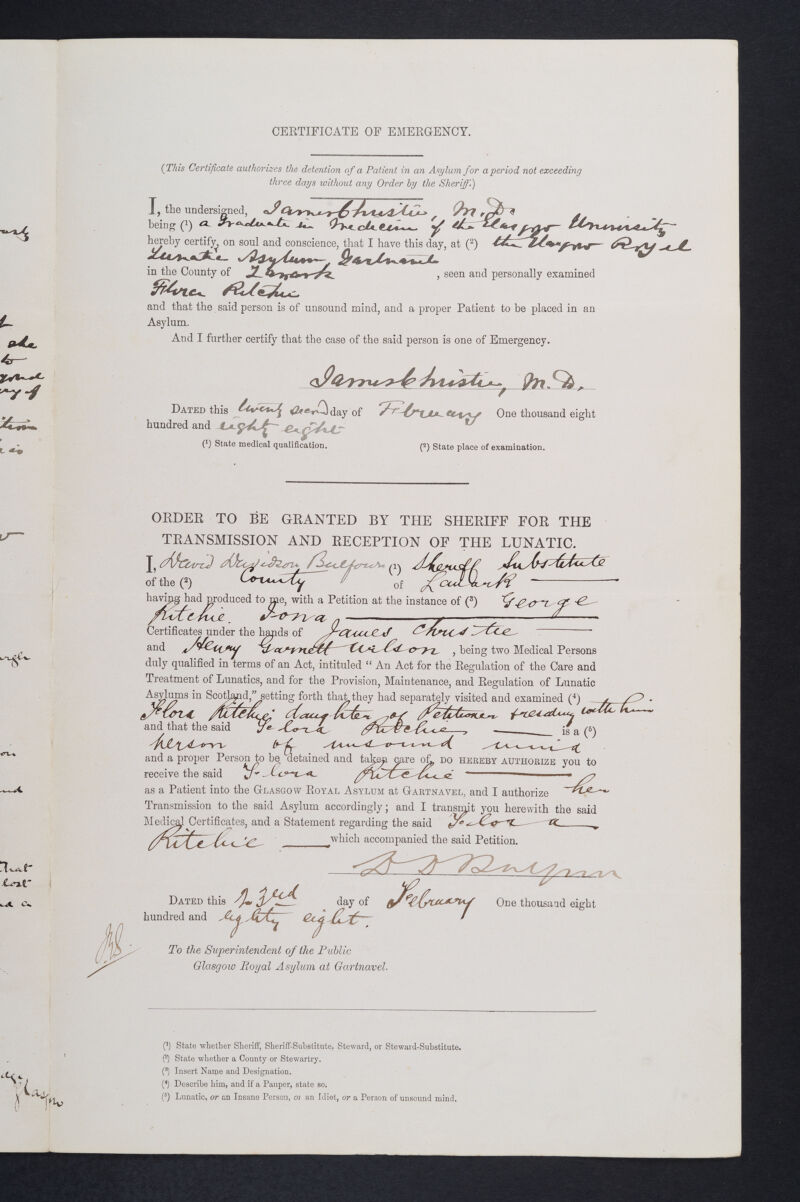 CERTIFICATE OF EMERGENCY.
(This Certificate authorizes the detention of a Patient in an Asylum for a period not exceeding
three days without any Order by the Sheriff.)
I, the undersigned, James Christie, M.D.
being (1) a Graduate in Medicine of the Glasgow University
hereby certify, on soul and conscience, that I have this day, at (2) the Glasgow Royal
Lunatic Asylum, Gartnavel
in the County of Lanark , seen and personally examined
Flora Ritchie
and that the said person is of unsound mind, and a proper Patient to be placed in an
Asylum.
And I further certify that the case of the said person is one of Emergency.
James Christie, M.D.
DATED this twenty second day of February One thousand eight
hundred and eighty eight
(1) State medical qualification. (2) State place of examination.
ORDER TO BE GRANTED BY THE SHERIFF FOR THE
TRANSMISSION AND RECEPTION OF THE LUNATIC.
I, David Davidson Balfour (1) Sheriff Substitute
of the (2) County of Lanark
having had produced to me, with a Petition at the instance of (3) George
Ritchie. Iona
Certificates under the hands of James Christie
and Henry Garnett Wilson , being two Medical Persons
duly qualified in terms of an Act, intituled “ An Act for the Regulation of the Care and
Treatment of Lunatics, and for the Provision, Maintenance, and Regulation of Lunatic
Asylums in Scotland,” setting forth that they had separately visited and examined (4)
Flora Ritchie daughter of Petitioner & residing with him
and that the said Flora Ritchie is a (5)
person of unsound mind
and a proper Person to be detained and taken care of, DO HEREBY AUTHORIZE you to
receive the said Flora Ritchie
as a Patient into the GLASGOW ROYAL ASYLUM AT GARTNAVEL, and I authorize her
Transmission to the said Asylum accordingly; and I transmit you herewith the said
Medical Certificates, and a Statement regarding the said Flora
Ritchie which accompanied the said Petition.
D D Balfour
DATED this 23rd day of February One thousand eight
hundred and eighty eight.
To the Superintendent of the Public
Glasgow Royal Asylum at Gartnavel.
(1) State whether Sheriff, Sheriff-Substitute, Steward, or Steward-Substitute.
(2) State whether a County or Stewartry.
(3) Insert Name and Designation.
(4) Describe him, and if a Pauper, state so.
(5) Lunatic, or an Insane Person, or an Idiot, or a Person of unsound mind.